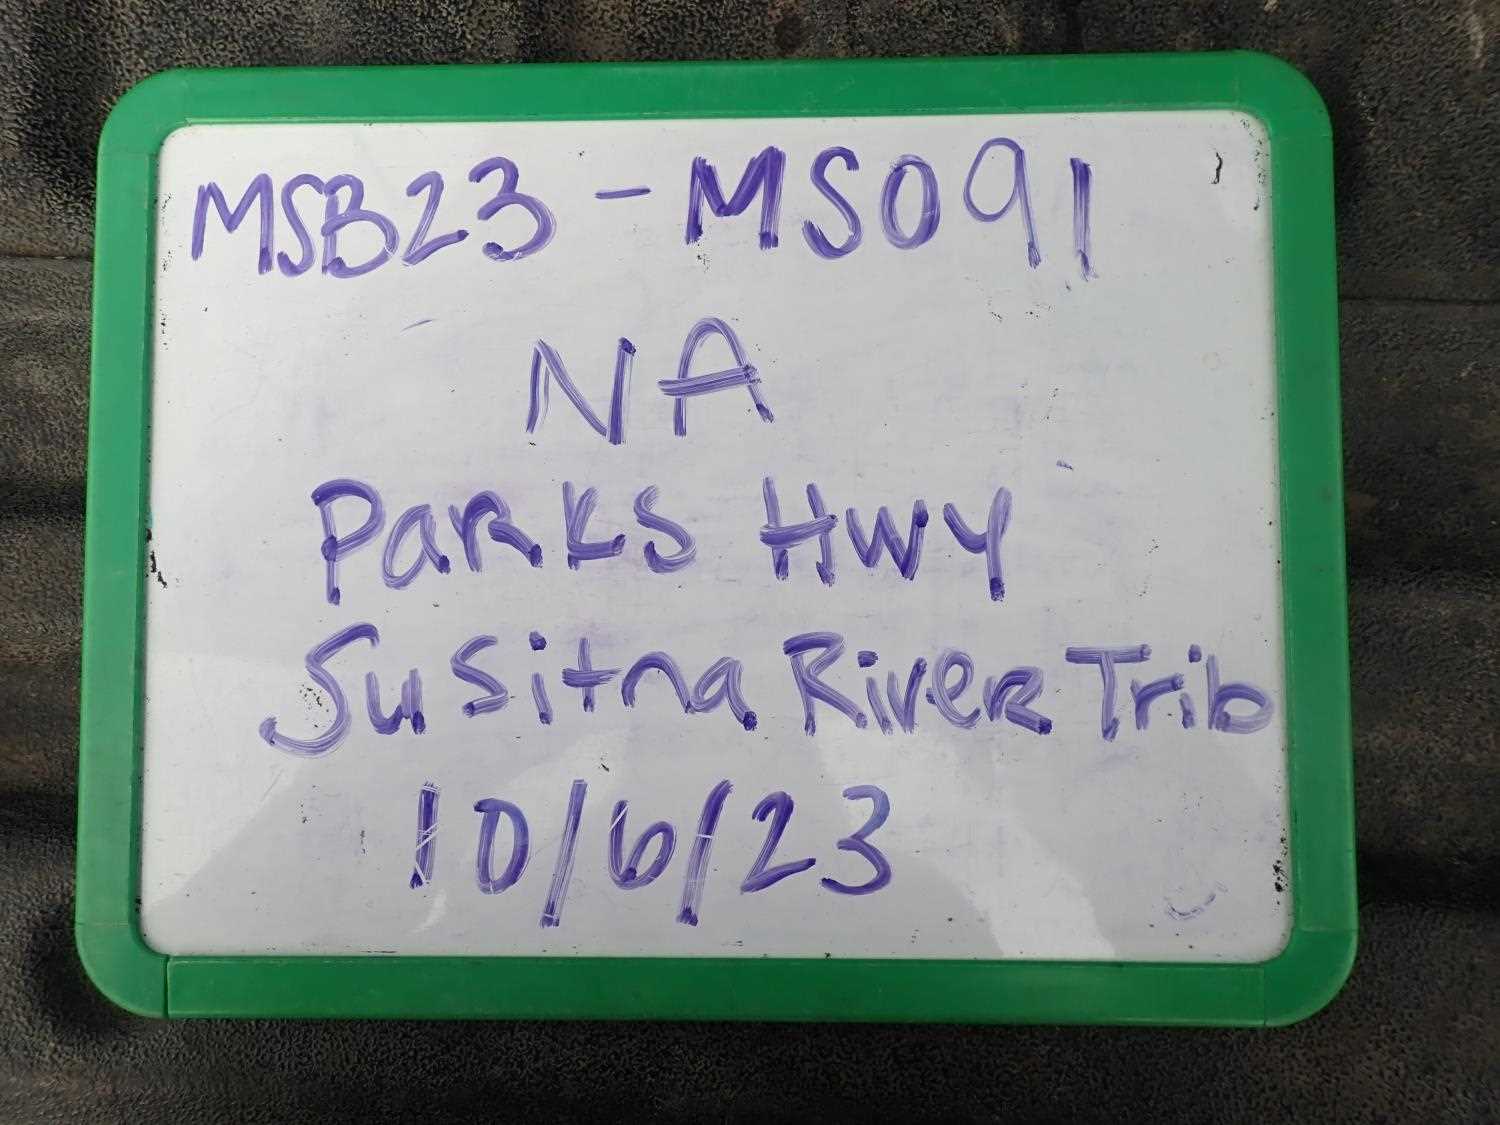 MSB23-MS091
NA
Parks Hwy
Susitna River Trib
10/6/23